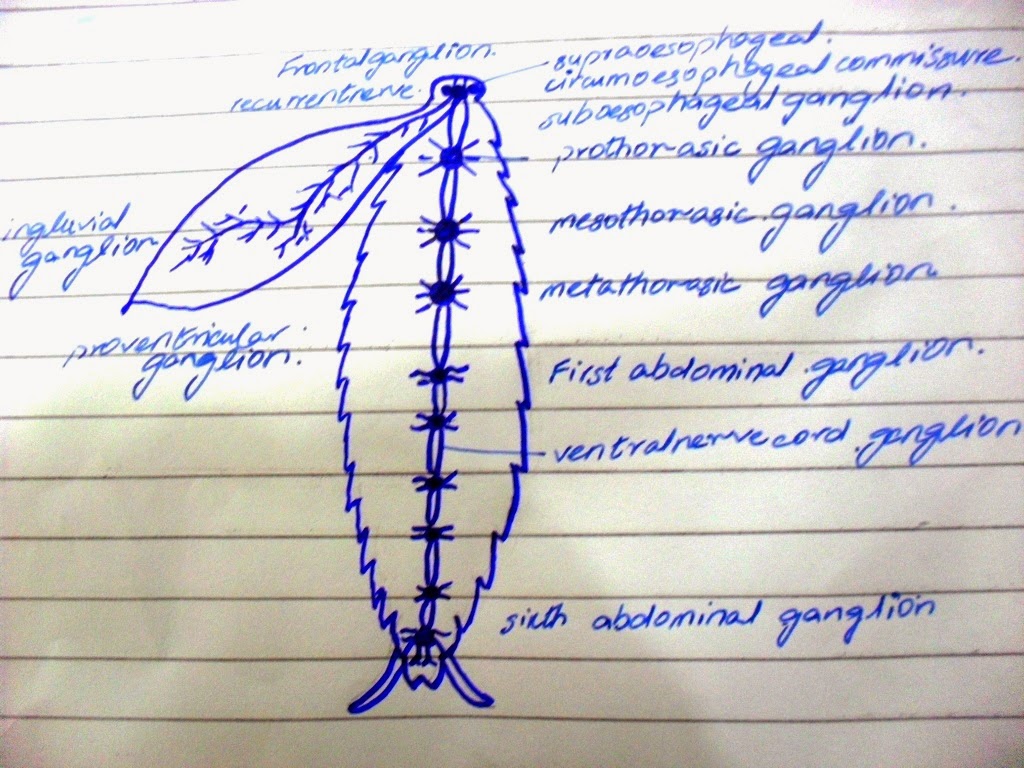 Frontalganglion.
recurrentnerve.
supraoesophageal.
circumoesophageal commissure.
suboesophageal ganglion.
prothorasic ganglion.
mesothorasic ganglion.
metathorasic ganglion.
First abdominal ganglion.
ventralnervecord ganglion
sixth abdominal ganglion
ingluvial
ganglion
proventricular
ganglion.